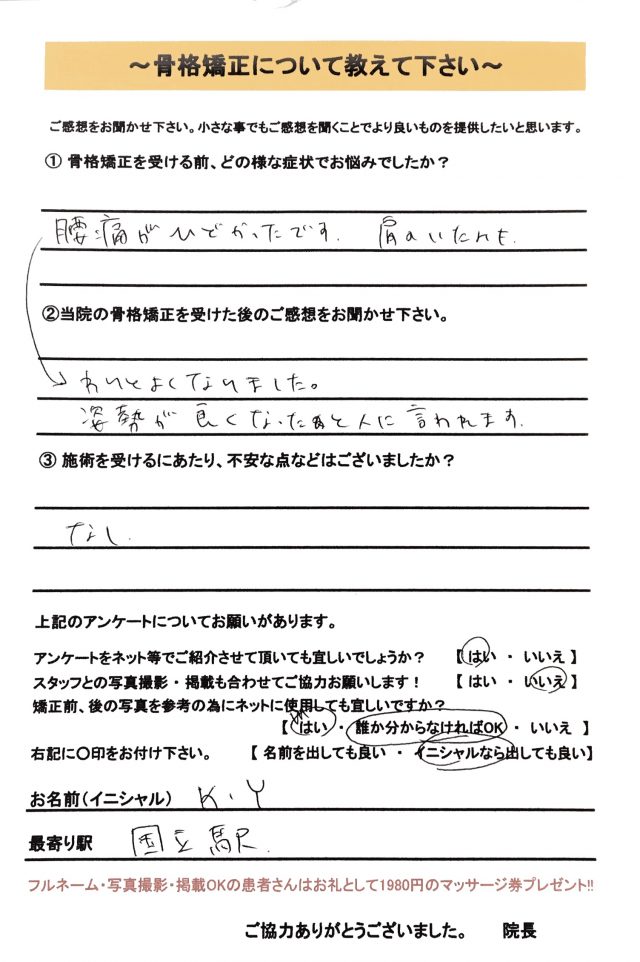 ~骨格矯正について教えて下さい~
ご感想をお聞かせ下さい。小さな事でもご感想を聞くことでより良いものを提供したいと思います。
① 骨格矯正を受ける前、どの様な症状でお悩みでしたか？
腰痛がひどかったです. 肩のいたみも.
②当院の骨格矯正を受けた後のご感想をお聞かせ下さい。
わりとよくなりました。
姿勢が良くなったねと人に言われます.
③ 施術を受けるにあたり、不安な点などはございましたか？
なし.
上記のアンケートについてお願いがあります。
アンケートをネット等でご紹介させて頂いても宜しいでしょうか？ 【 はい ・ いいえ 】
スタッフとの写真撮影・掲載も合わせてご協力お願いします！ 【 はい ・ いいえ 】
矯正前、後の写真を参考の為にネットに使用しても宜しいですか？
【 はい ・ 誰か分からなければOK ・ いいえ 】
右記に〇印をお付け下さい。 【 名前を出しても良い ・ イニシャルなら出しても良い】
お名前（イニシャル） K・Y
最寄り駅 国立駅.
フルネーム・写真撮影・掲載OKの患者さんはお礼として1980円のマッサージ券プレゼント!!
ご協力ありがとうございました。 院長